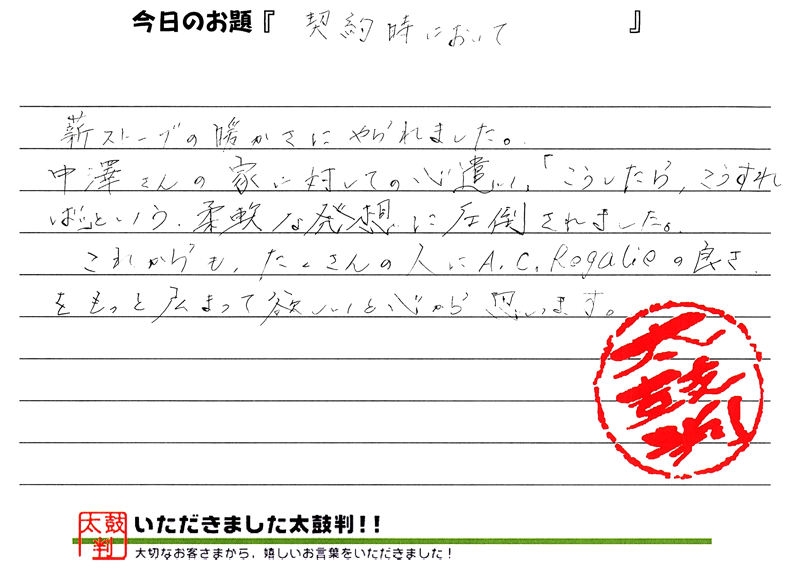 今日のお題『 契約時において 』
薪ストーブの暖かさにやられました。
中澤さんの家に対しての心遣い、「こうしたら、こうすれ
ば」という、柔軟な発想に圧倒されました。
これからも、たくさんの人にA.C.Regalieの良さ
をもっと広まって欲しいと心から思います。
太鼓判
太鼓判
いただきました太鼓判!!
大切なお客さまから、嬉しいお言葉をいただきました!